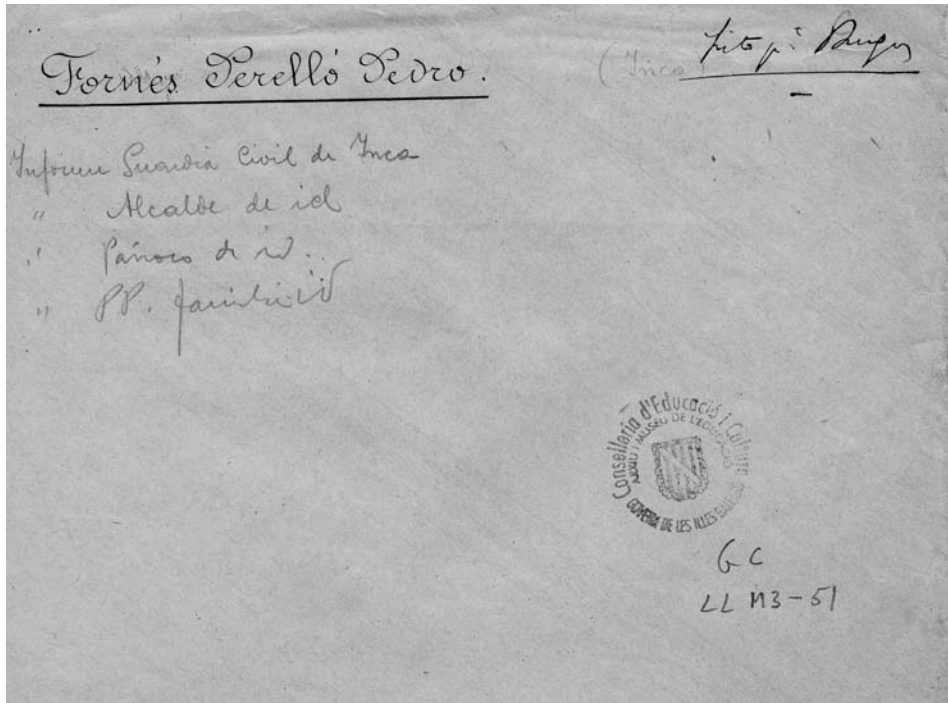 Fornés Perelló Pedro.
(Inca)
Informe Guardia Civil de Inca
" Alcalde de id
" Párroco de id.
" PP. familia id
Conselleria d'Educació i Cultura
ARXIU I MUSEU DE L'EDUCACIÓ
GOVERN DE LES ILLES BALEARS
GC
LL M3-51